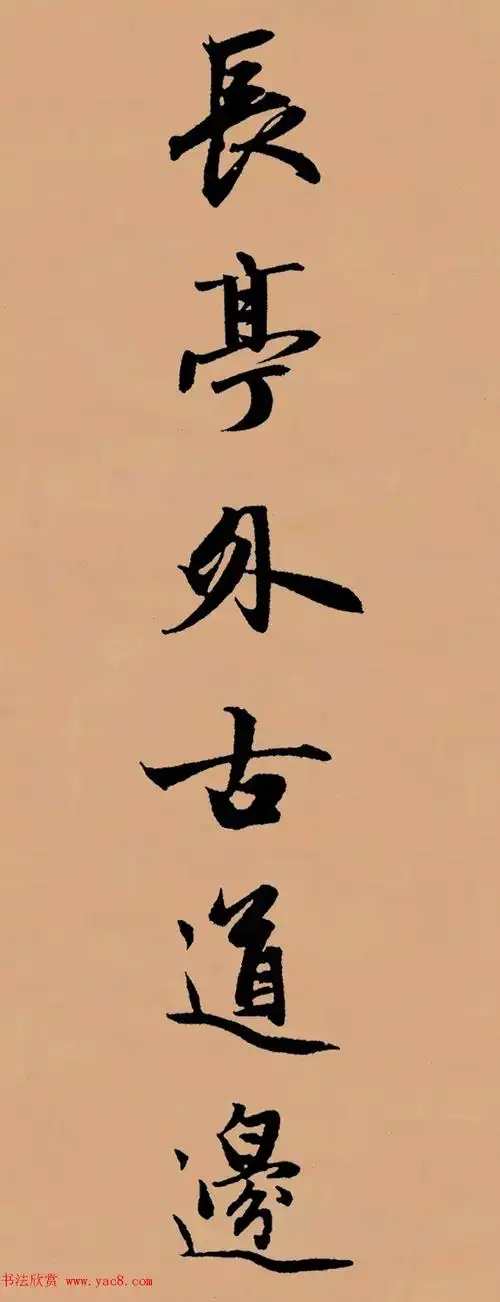 長亭外古道邊
书法欣赏 www.yac8.com